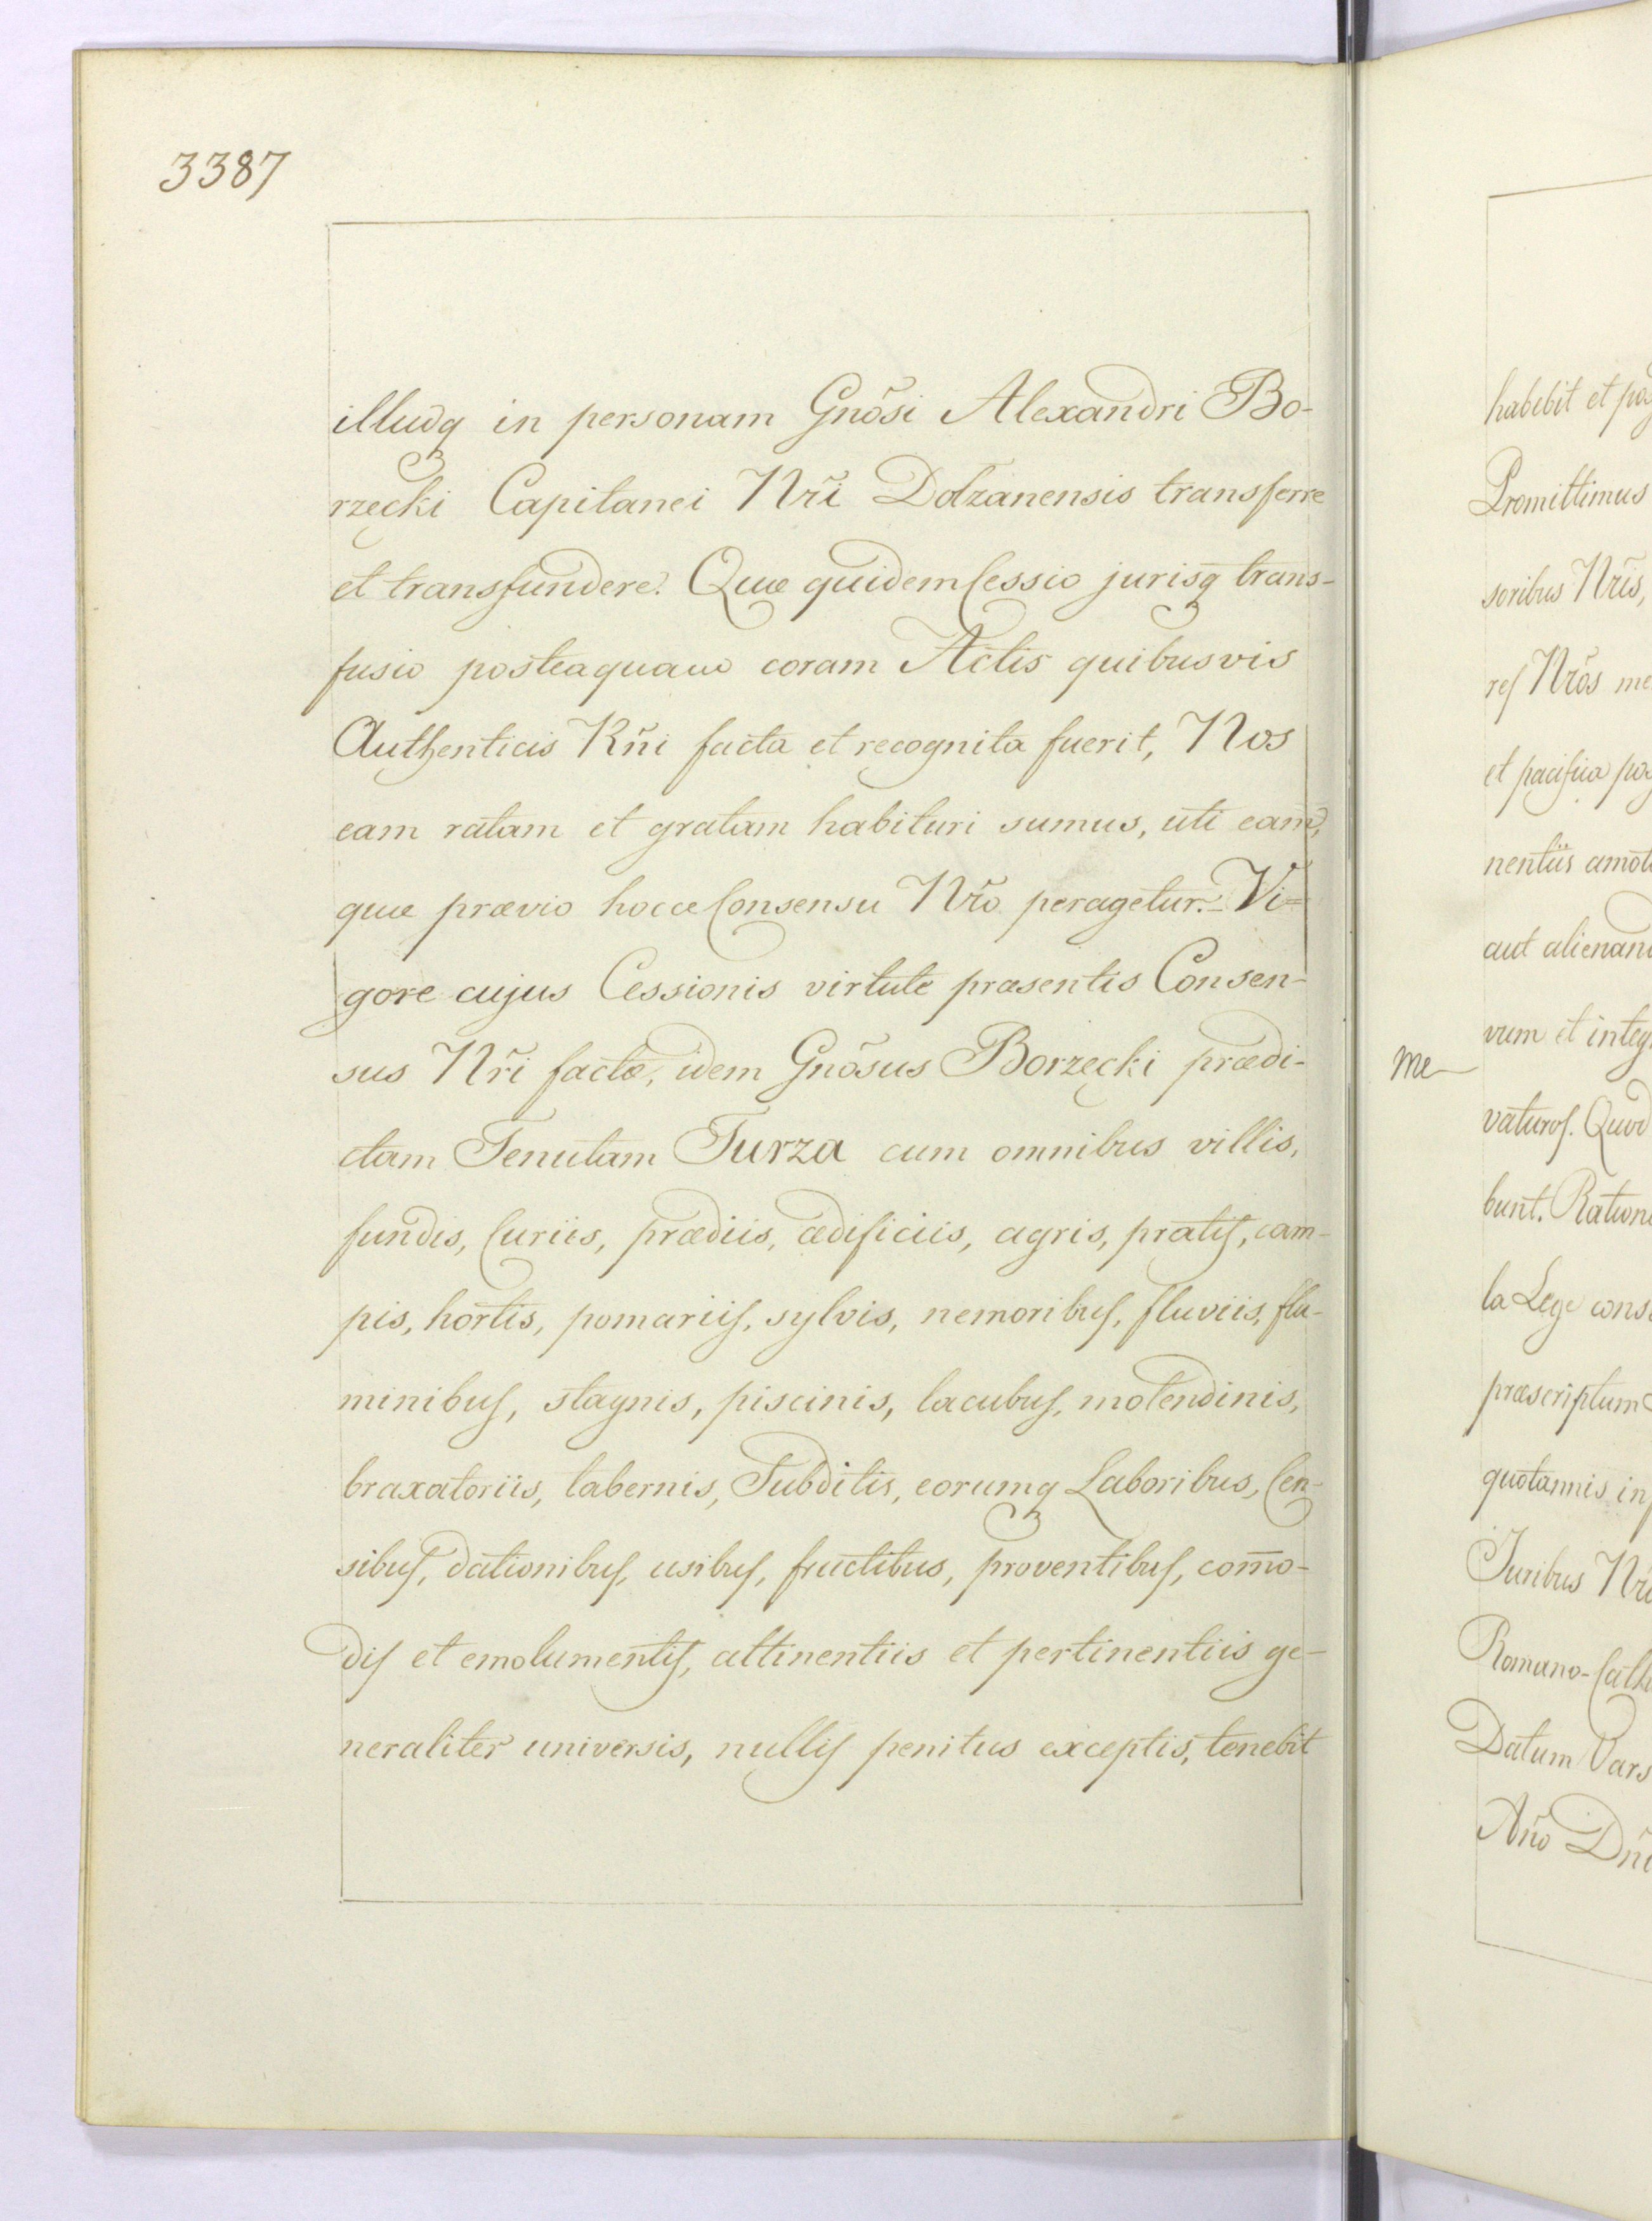 3387
illudq in personam Gnõsi Alexandri Bo-
rzęcki Capitanei Nr̃i Dolzanensis transferre
et transfundere. Quæ quidem Cessio jurisq trans-
fusio posteaquam coram Actis quibusvis
Authenticis Rñi facta et recognita fuerit, Nos
eam ratam et gratam habituri sumus, uti eam,
quæ prævio hocce Consensu Nr̃o peragetur.- Vi=
gore cujus Cessionis virtute præsentis Consen-
sus Nr̃i factæ, idem Gnõsus Borzęcki prædi-
ctam Tenutam Turza cum omnibus villis,
fundis, Curiis, prædiis, ædificiis, agris, pratis, cam-
pis, hortis, pomariis, sylvis, nemoribus, fluviis, flu-
minibus, stagnis, piscinis, lacubus, molendinis,
braxatoriis, tabernis, Subditis, eorumq Laboribus, Cen-
sibus, dationibus, usibus, fructibus, proventibus, com̃o-
dis et emolumentis, attinentiis et pertinentiis ge-
neraliter universis, nullis penitus exceptis, tenebit
habebit et pos
Promittimus
soribus Nr̃is,
res Nr̃os me
et pacifica pos
nentiis amot
aut alienand
vum et integ
me
vaturos. Quod
bunt. Ratione
la Lege cons
præscriptum
quotannis in
Juribus Nr̃
Romano-Cath
Datum Vars
Año Dñi